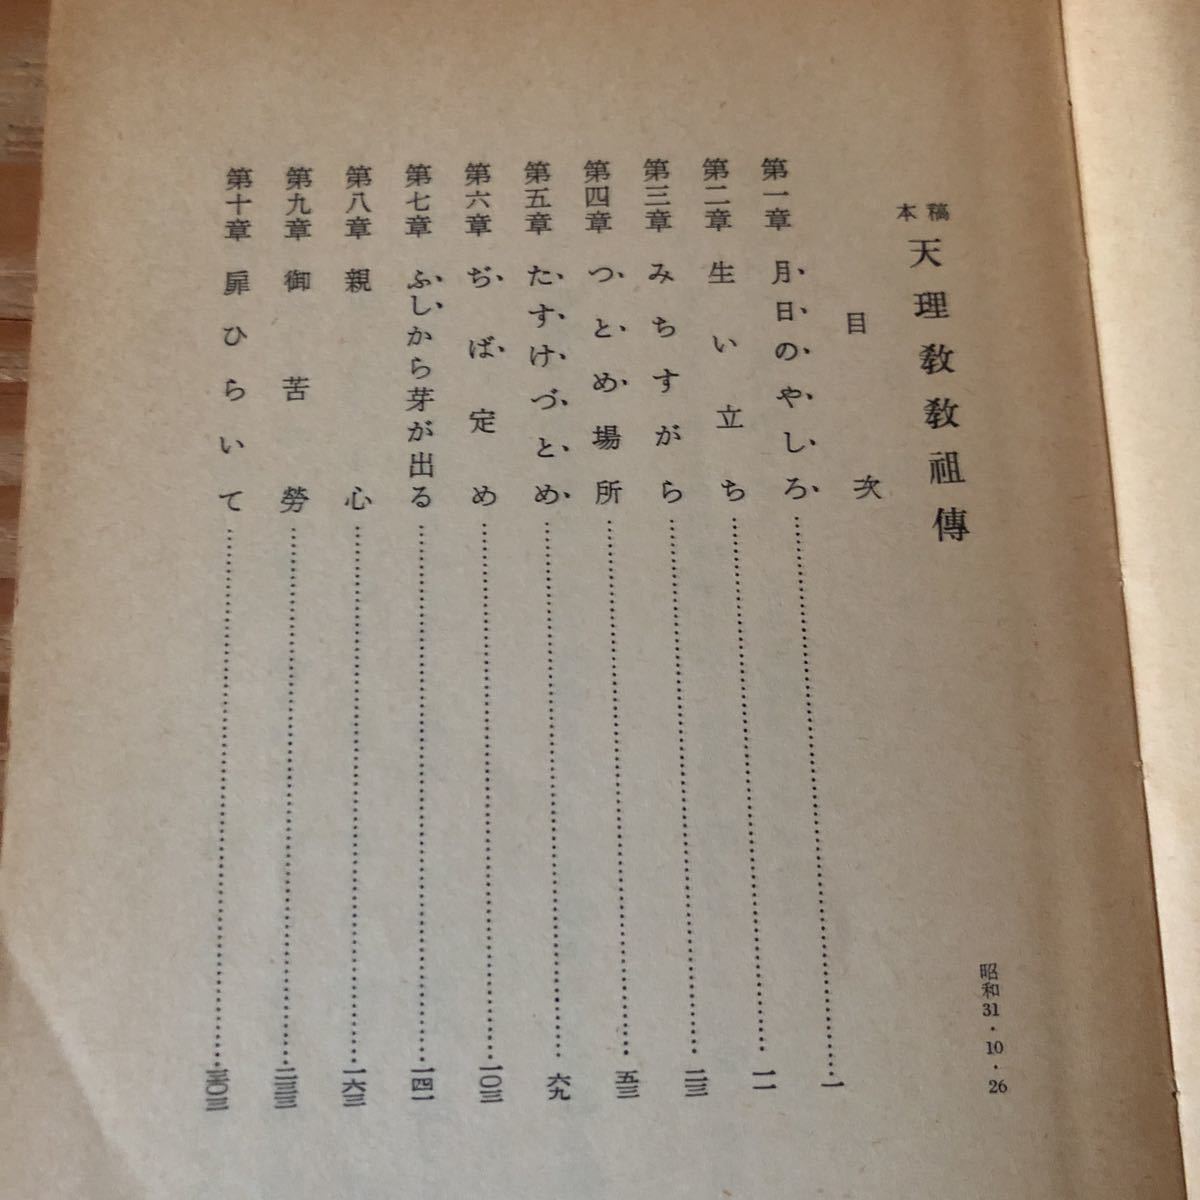 稿本 天理教教祖傳
昭和31・10・26
目次
第一章 月日のやしろ……一
第二章 生い立ち……一一
第三章 みちすがら……二三
第四章 つとめ場所……五三
第五章 たすけづとめ……六九
第六章 ぢば定め……一〇三
第七章 ふしから芽が出る……一四一
第八章 親心……一六三
第九章 御苦勞……二三三
第十章 扉ひらいて……三〇三